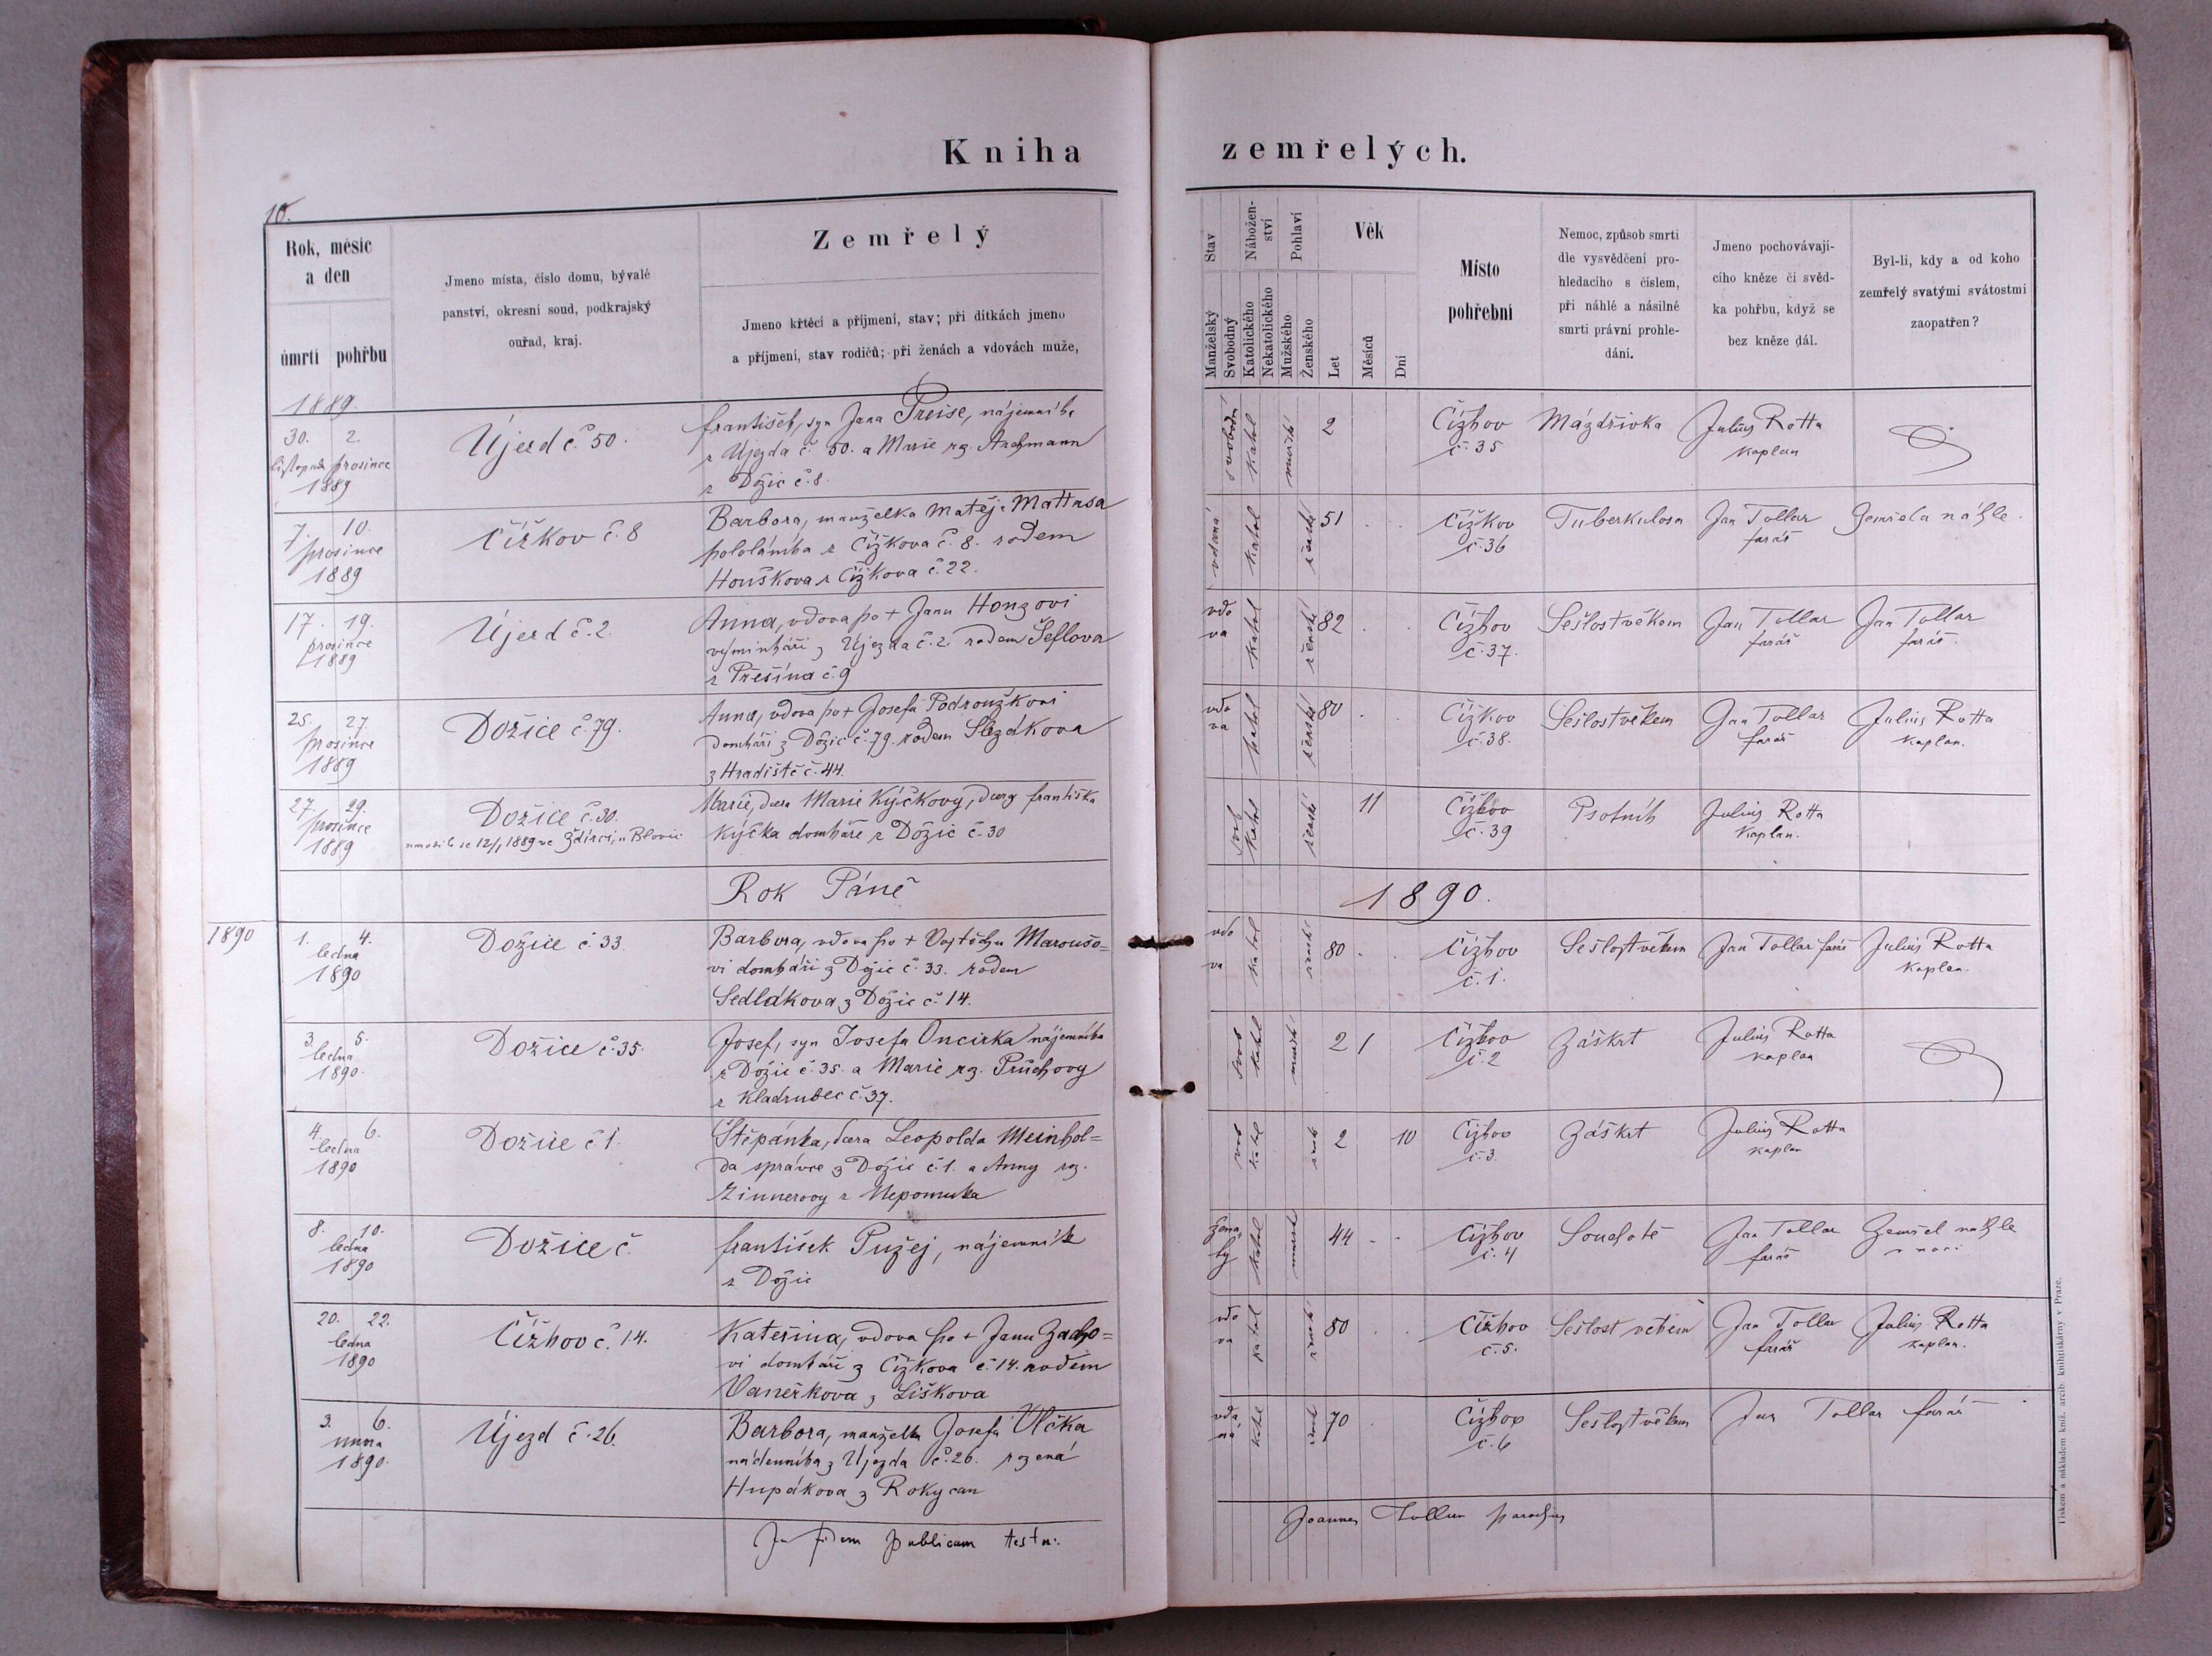 Kniha zemřelých.
10.
Rok, měsíc
a den
úmrtí pohřbu
Jmeno místa, číslo domu, bývalé
panství, okresní soud, podkrajský
ouřad, kraj.
Zemřelý
Jmeno křtěcí a příjmení, stav; při dítkách jmeno
a příjmení, stav rodičů; při ženách a vdovách muže,
Stav
Manželský
Svobodný
Nábožen-
ství
Katolického
Nekatolického
Pohlaví
Mužského
Ženského
Věk
Let
Měsíců
Dní
Místo
pohřební
Nemoc, způsob smrti
dle vysvědčení pro-
hledacího s číslem,
při náhlé a násilné
smrti právní prohle-
dání.
Jmeno pochovávají-
cího kněze či svěd-
ka pohřbu, když se
bez kněze dál.
Byl-li, kdy a od koho
zemřelý svatými svátostmi
zaopatřen?
1889.
30. 2.
listopadu prosince
1889
Újezd č. 50.
František, syn Jana Preise, nájemníka
z Újezda č. 50. a Marie rz.
z Dožic č. 8.
svobodný katol mužské 2
Čížkov
č. 35
Mázdřivka
Julius Rotta
kaplan
7. 10.
prosince
1889
Čížkov č. 8
Barbora, manželka Matěje Mattasa
pololáníka z Čížkova č. 8. rodem
Houškova z Čížkova č. 22.
vdaná katol ženské 51
Čížkov
č. 36
Tuberkulosa
Jan Tollar
farář
Zemřela náhle.
17. 19.
prosince
1889
Újezd č. 2.
Anna, vdova po + Janu Honzovi
výminkáři z Újezda č. 2. rodem Šeflova
z Přešína č. 9
vdova katol ženské 82
Čížkov
č. 37.
Sešlost věkem
Jan Tollar
farář
Jan Tollar
farář.
25. 27.
prosince
1889
Dožice č. 79.
Anna, vdova po + Josefu Podroužkovi
domkáři z Dožic č. 79. rodem Slezákova
z Hradiště č. 44.
vdova katol ženské 80
Čížkov
č. 38.
Sešlost věkem
Jan Tollar
farář
Julius Rotta
kaplan.
27. 29.
prosince
1889
Dožice č. 30.
1889 ve Ždírci, u Blovic
Marie, dcera Marie Kýčkovy, dcery Františka
Kýčka domkáře z Dožic č. 30
svob katol ženské 11
Čížkov
č. 39
Psotník
Julius Rotta
Kaplan.
Rok Páně 1890.
1890
1. 4.
ledna
1890
Dožice č. 33.
Barbora, vdova po + Vojtěchu Maroušo=
vi domkáři z Dožic č. 33. rodem
Sedlákova z Dožic č. 14.
vdova katol žensk 80
Čížkov
č. 1.
Sešlost věkem
Jan Tollar farář
Julius Rotta
kaplan.
3. 5.
ledna
1890.
Dožice č. 35.
Josef, syn Josefa Oncirka nájemníka
z Dožic č. 35. a Marie rz. Průchovy
z Kladrubec č. 37.
svob katol mužsk 2 1
Čížkov
č. 2
Záškrt
Julius Rotta
kaplan
4. 6.
ledna
1890
Dožice č. 1.
Štěpánka, dcera Leopolda Meinhol=
da správce z Dožic č. 1. a Anny rz.
Zinnerovy z Nepomuka
svob katol žensk 2 10
Čížkov
č. 3.
Záškrt
Julius Rotta
kaplan
8. 10.
ledna
1890
Dožice č.
František Pužej, nájemník
z Dožic
ženatý katol mužsk 44
Čížkov
č. 4
Souchotě
Jan Tollar
farář
Zemřel náhle
v noci
20. 22.
ledna
1890
Čížkov č. 14.
Kateřina, vdova po + Janu Zacho=
vi domkáři z Čížkova č. 14. rodem
Vaneřkova z Liškova
vdova katol žensk 80
Čížkov
č. 5.
Sešlost věkem
Jan Tollar
farář
Julius Rotta
kaplan.
3. 6.
února
1890.
Újezd č. 26.
Barbora, manželka Josefa Vlčka
nádenníka z Újezda č. 26. rozená
Hupákova z Rokycan
vdaná katol žensk 70
Čížkov
č. 6
Sešlost věkem
Jan Tollar farář
In fidem publicam testor.
Joannes Tollar parochus
Tiskem a nákladem kníž. arcib. knihtiskárny v Praze.